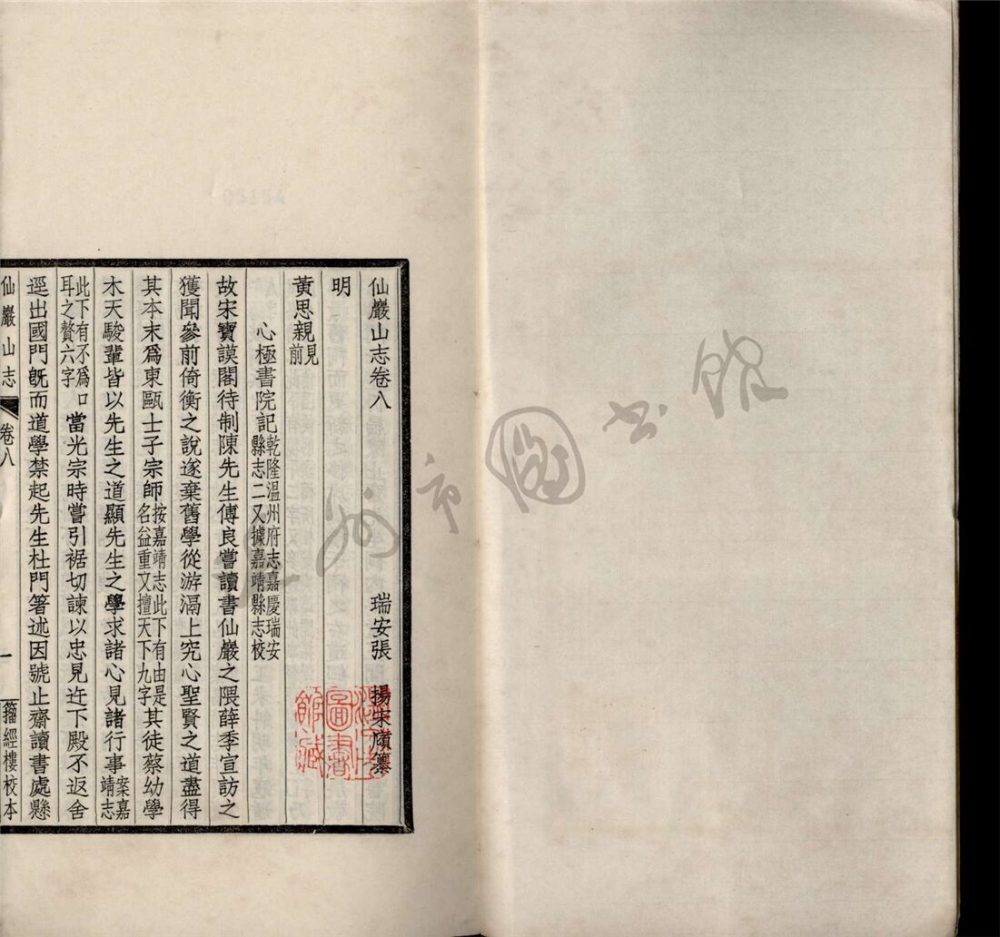 仙巖山志卷八
瑞安張 揚宋廎纂
明
黃思親見前
心極書院記乾隆溫州府志嘉慶瑞安縣志二又據嘉靖縣志校
故宋寶謨閣待制陳先生傅良嘗讀書仙巖之隈薛季宣訪之
獲聞參前倚衡之說遂棄舊學從游滆上究心聖賢之道盡得
其本末爲東甌士子宗師按嘉靖志此下有由是名益重又擅天下九字其徒蔡幼學
木天駿輩皆以先生之道顯先生之學求諸心見諸行事案嘉靖志
此下有不爲口耳之贅六字當光宗時嘗引裾切諫以忠見迕下殿不返舍
逕出國門旣而道學禁起先生杜門箸述因號止齋讀書處縣
仙巖山志 卷八 一 籀經樓校本
市圖書館
圖書館藏